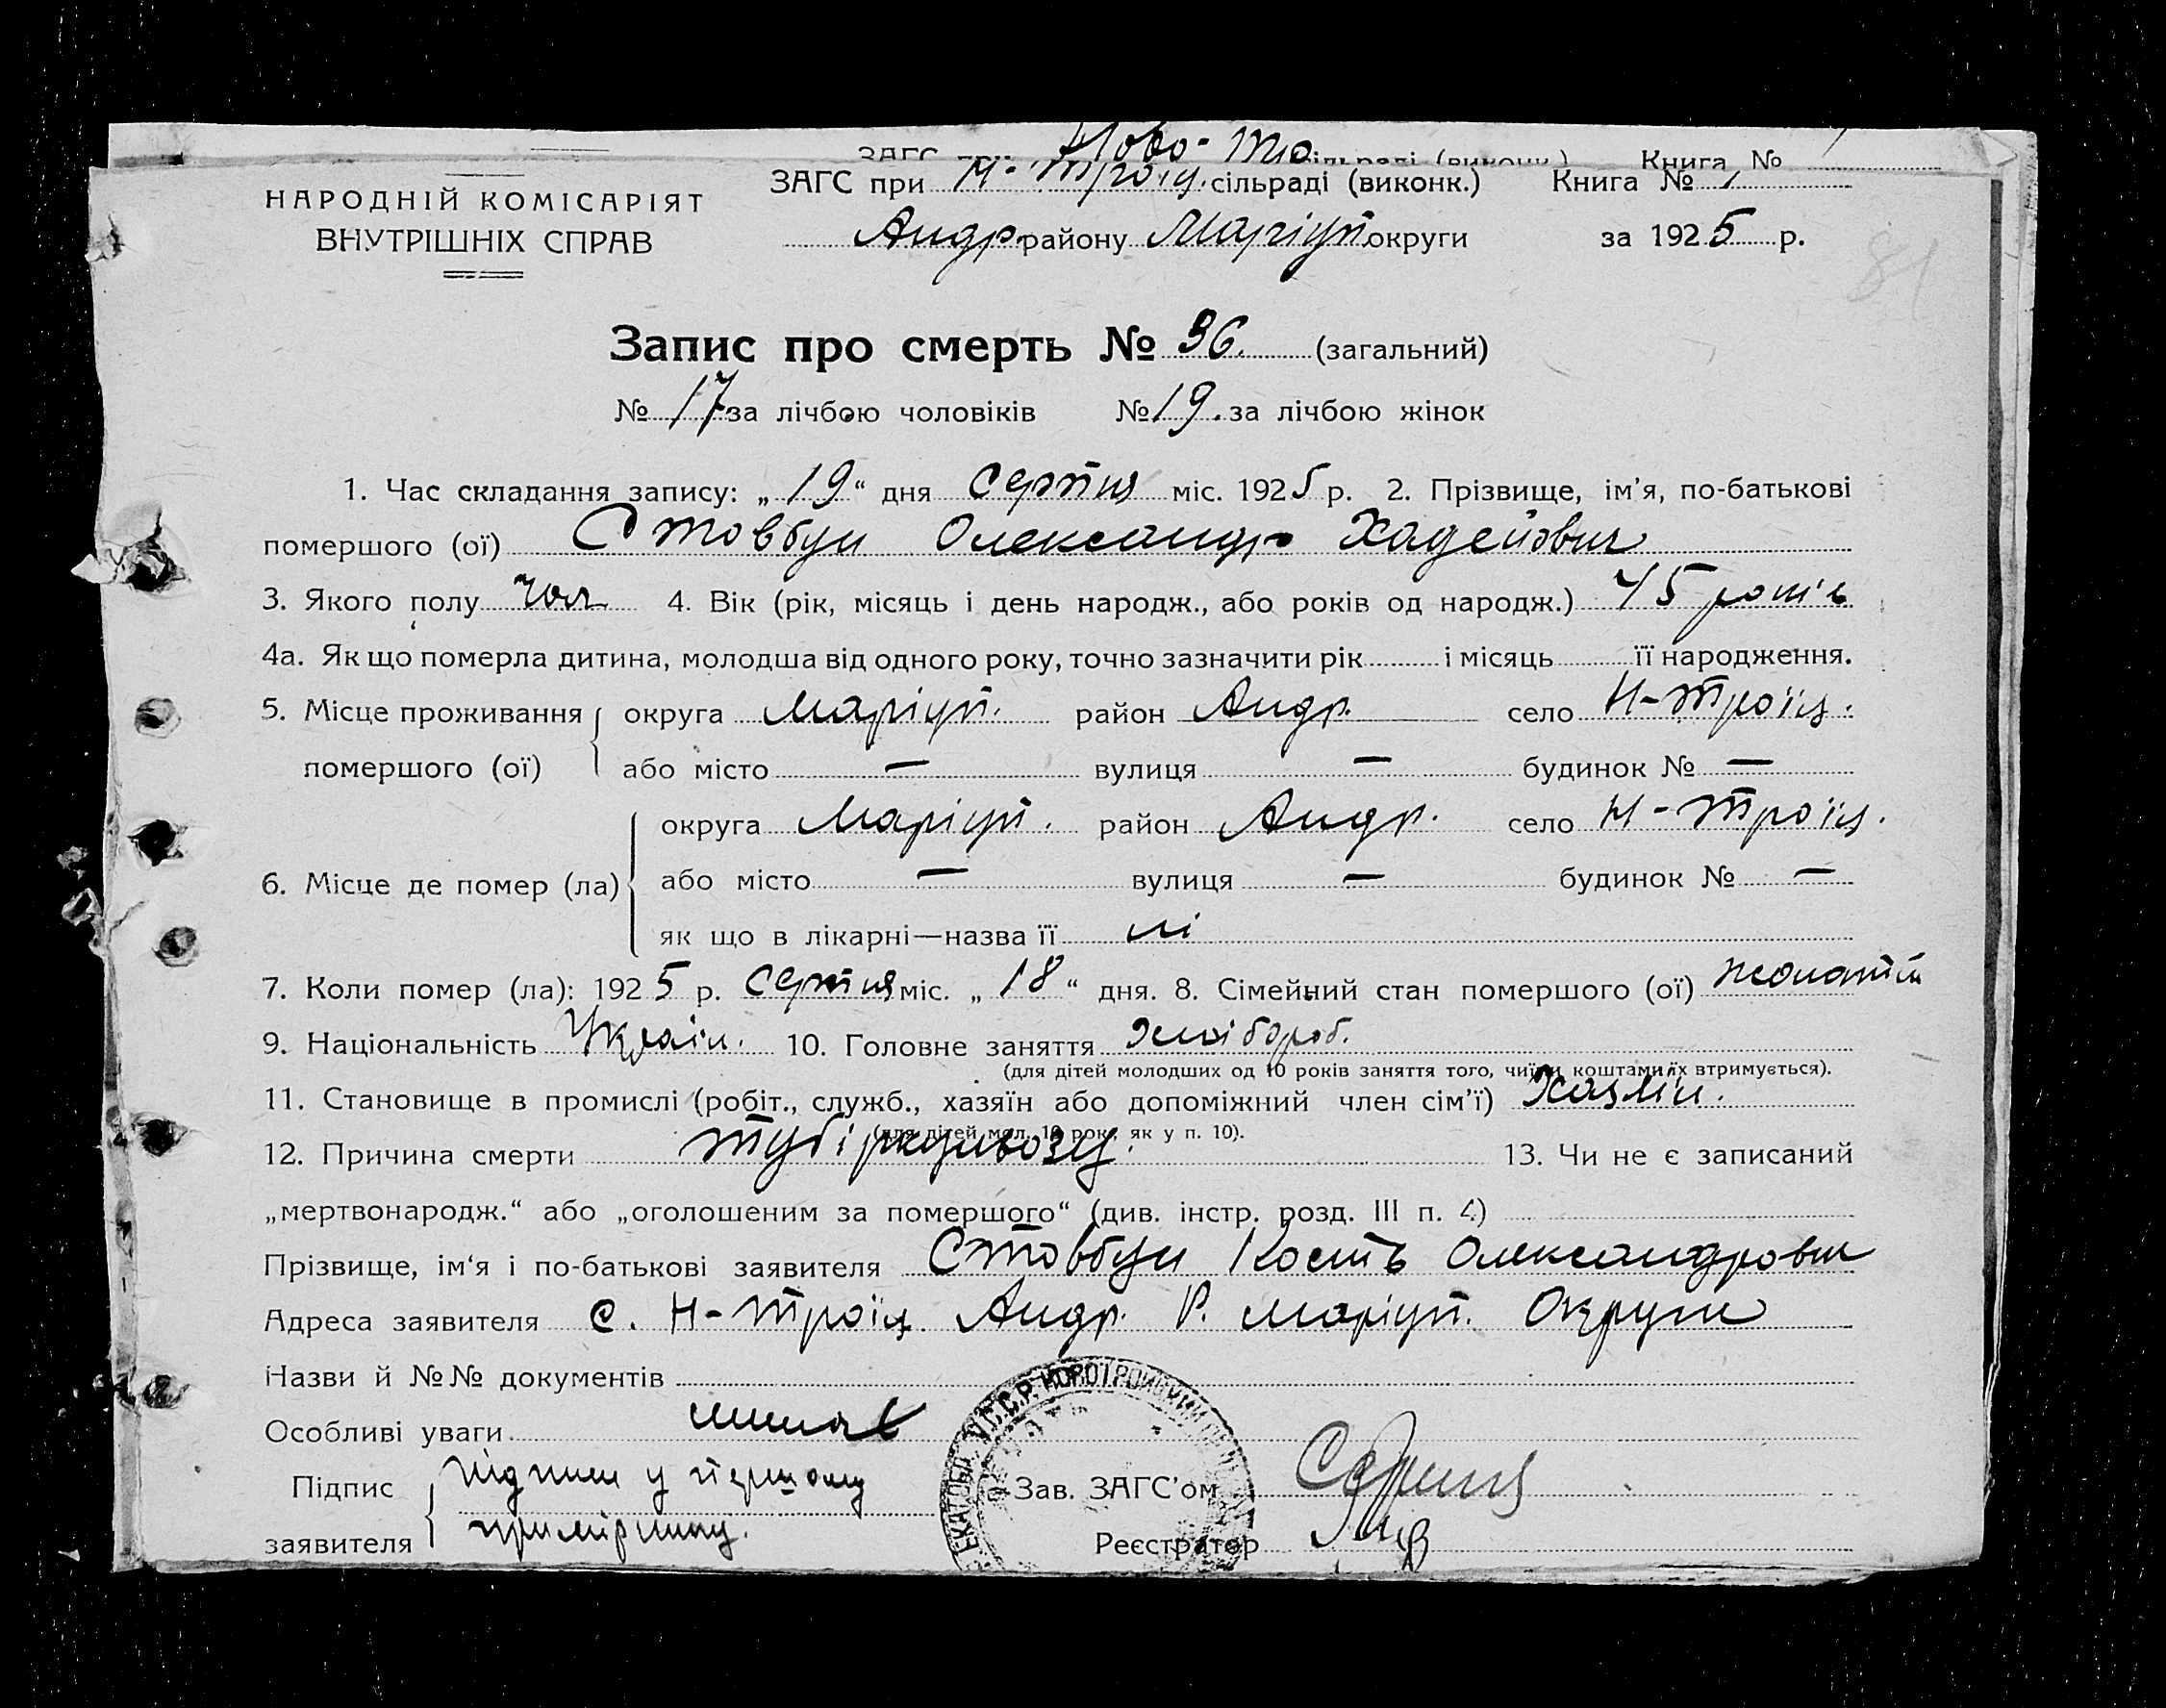 Ново-Тро
ЗАГС при Н-Троіц. сільраді (виконк.) Книга № 1
НАРОДНІЙ КОМІСАРІЯТ
ВНУТРІШНІХ СПРАВ
Андр. району Маріуп. округи за 1925 р.
81
Запис про смерть № 36. (загальний)
№ 17 за лічбою чоловіків № 19. за лічбою жінок
1. Час складання запису: „19“ дня Серпня міс. 1925 р. 2. Прізвище, ім’я, по-батькові
помершого (ої) Стовбун Олександр Хадейович
3. Якого полу чол 4. Вік (рік, місяць і день народж., або років од народж.) 45 років
4а. Як що померла дитина, молодша від одного року, точно зазначити рік і місяць її народження.
5. Місце проживання округа Маріуп. район Андр. село Н-Троїц.
помершого (ої) або місто — вулиця — будинок № —
округа Маріуп. район Андр. село Н-Троїц.
6. Місце де помер (ла) або місто — вулиця — будинок № —
як що в лікарні—назва її ні
7. Коли помер (ла): 1925 р. Серпня міс. „18“ дня. 8. Сімейний стан помершого (ої) жонатий
9. Національність Україн. 10. Головне заняття Хлібороб.
(для дітей молодших од 10 років заняття того, чиїми коштами їх втримується).
11. Становище в промислі (робіт., служб., хазяїн або допоміжний член сім’ї) Хазяін.
(для дітей мол. 10 рок., як у п. 10).
12. Причина смерти тубіркульозу. 13. Чи не є записаний
„мертвонародж.“ або „оголошеним за помершого“ (див. інстр. розд. III п. 4)
Прізвище, ім‘я і по-батькові заявителя Стовбун Кость Олександрови
Адреса заявителя с. Н-Троїц. Андр. Р. Маріуп. Округи
Назви й №№ документів
Особливі уваги
Підпис підпис у першому Зав. ЗАГС’ом
заявителя примірнику. Реєстратор